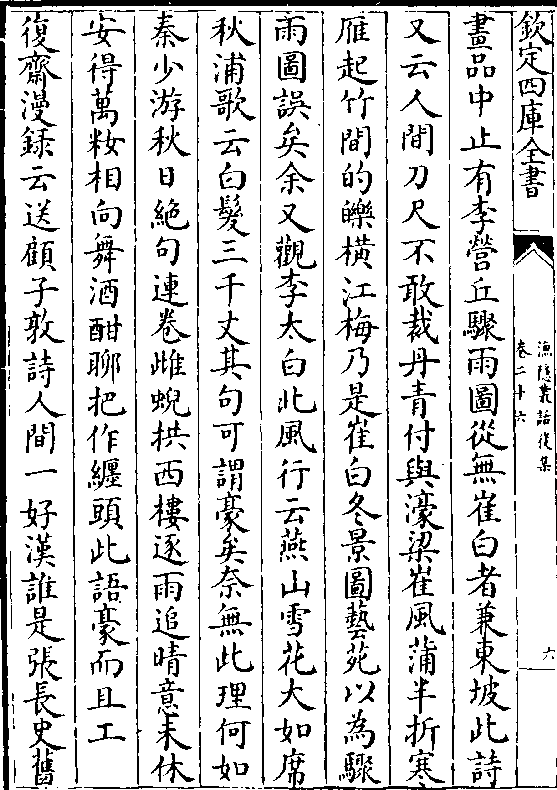 欽定四庫全書
漁隱叢話後集
卷二十六
六
畫品中止有李營丘驟雨圖從無崔白者兼東坡此詩
又云人間刀尺不敢裁丹青付與濠梁崔風蒲半折寒
雁起竹間的皪橫江梅乃是崔白冬景圖藝苑以為驟
雨圖誤矣余又觀李太白北風行云燕山雪花大如席
秋浦歌云白髮三千丈其句可謂豪矣奈無此理何如
秦少游秋日絶句連卷雌蜺拱西樓逐雨追晴意未休
安得萬粧相向舞酒酣聊把作纒頭此語豪而且工
復齋漫録云送顧子敦詩人間一好漢誰是張長史舊